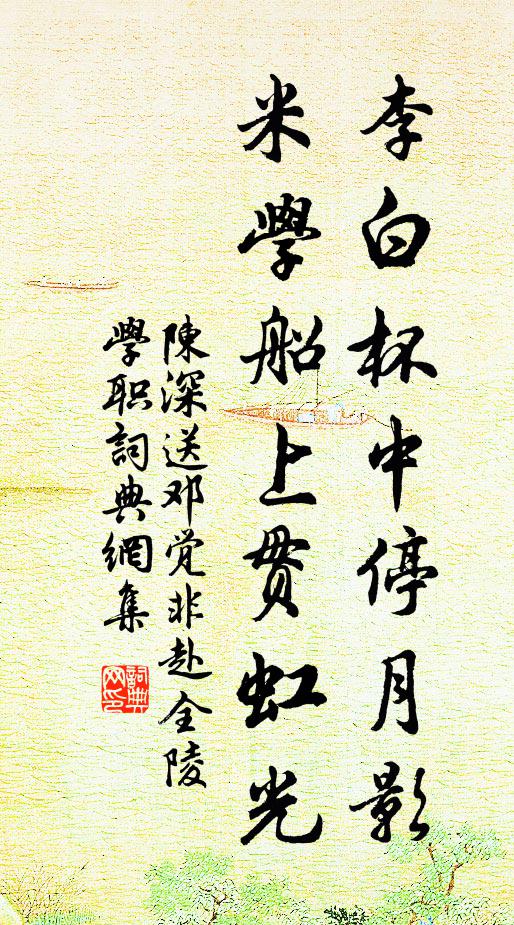 李白杯中停月影
米學船上貫虹光
陳深送邓觉非赴全陵
學职詞典網集
詞典
网印